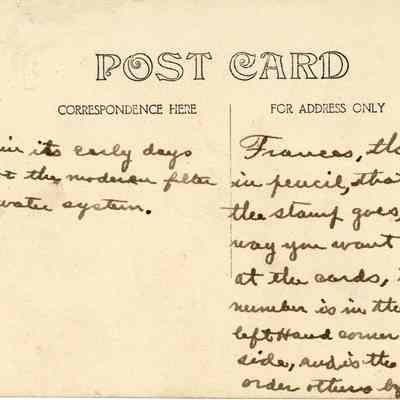 POST CARD
CORRESPONDENCE HERE
FOR ADDRESS ONLY
in its early days
the modern filter
water system.
Frances, th
in pencil, tha
the stamp goes,
way you want
at the cards,
number is in the
left Hand corner
side, and is the
order others by